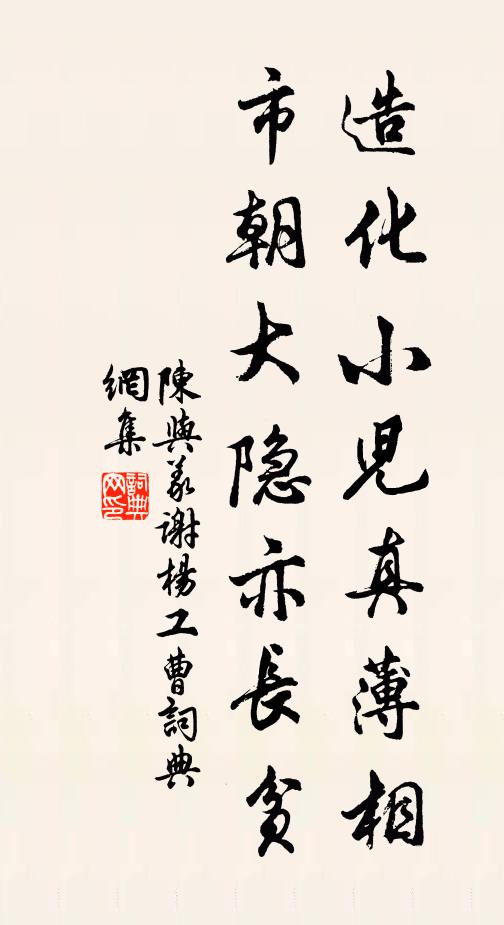 造化小兒真薄相
市朝大隐亦長貧
陳與義謝楊工曹詞典
網集
詞典
网印